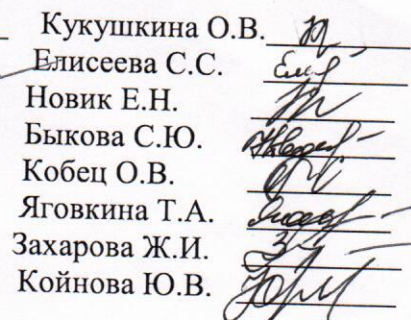 Кукушкина О.В.
Елисеева С.С.
Новик Е.Н.
Быкова С.Ю.
Кобец О.В.
Яговкина Т.А.
Захарова Ж.И.
Койнова Ю.В.